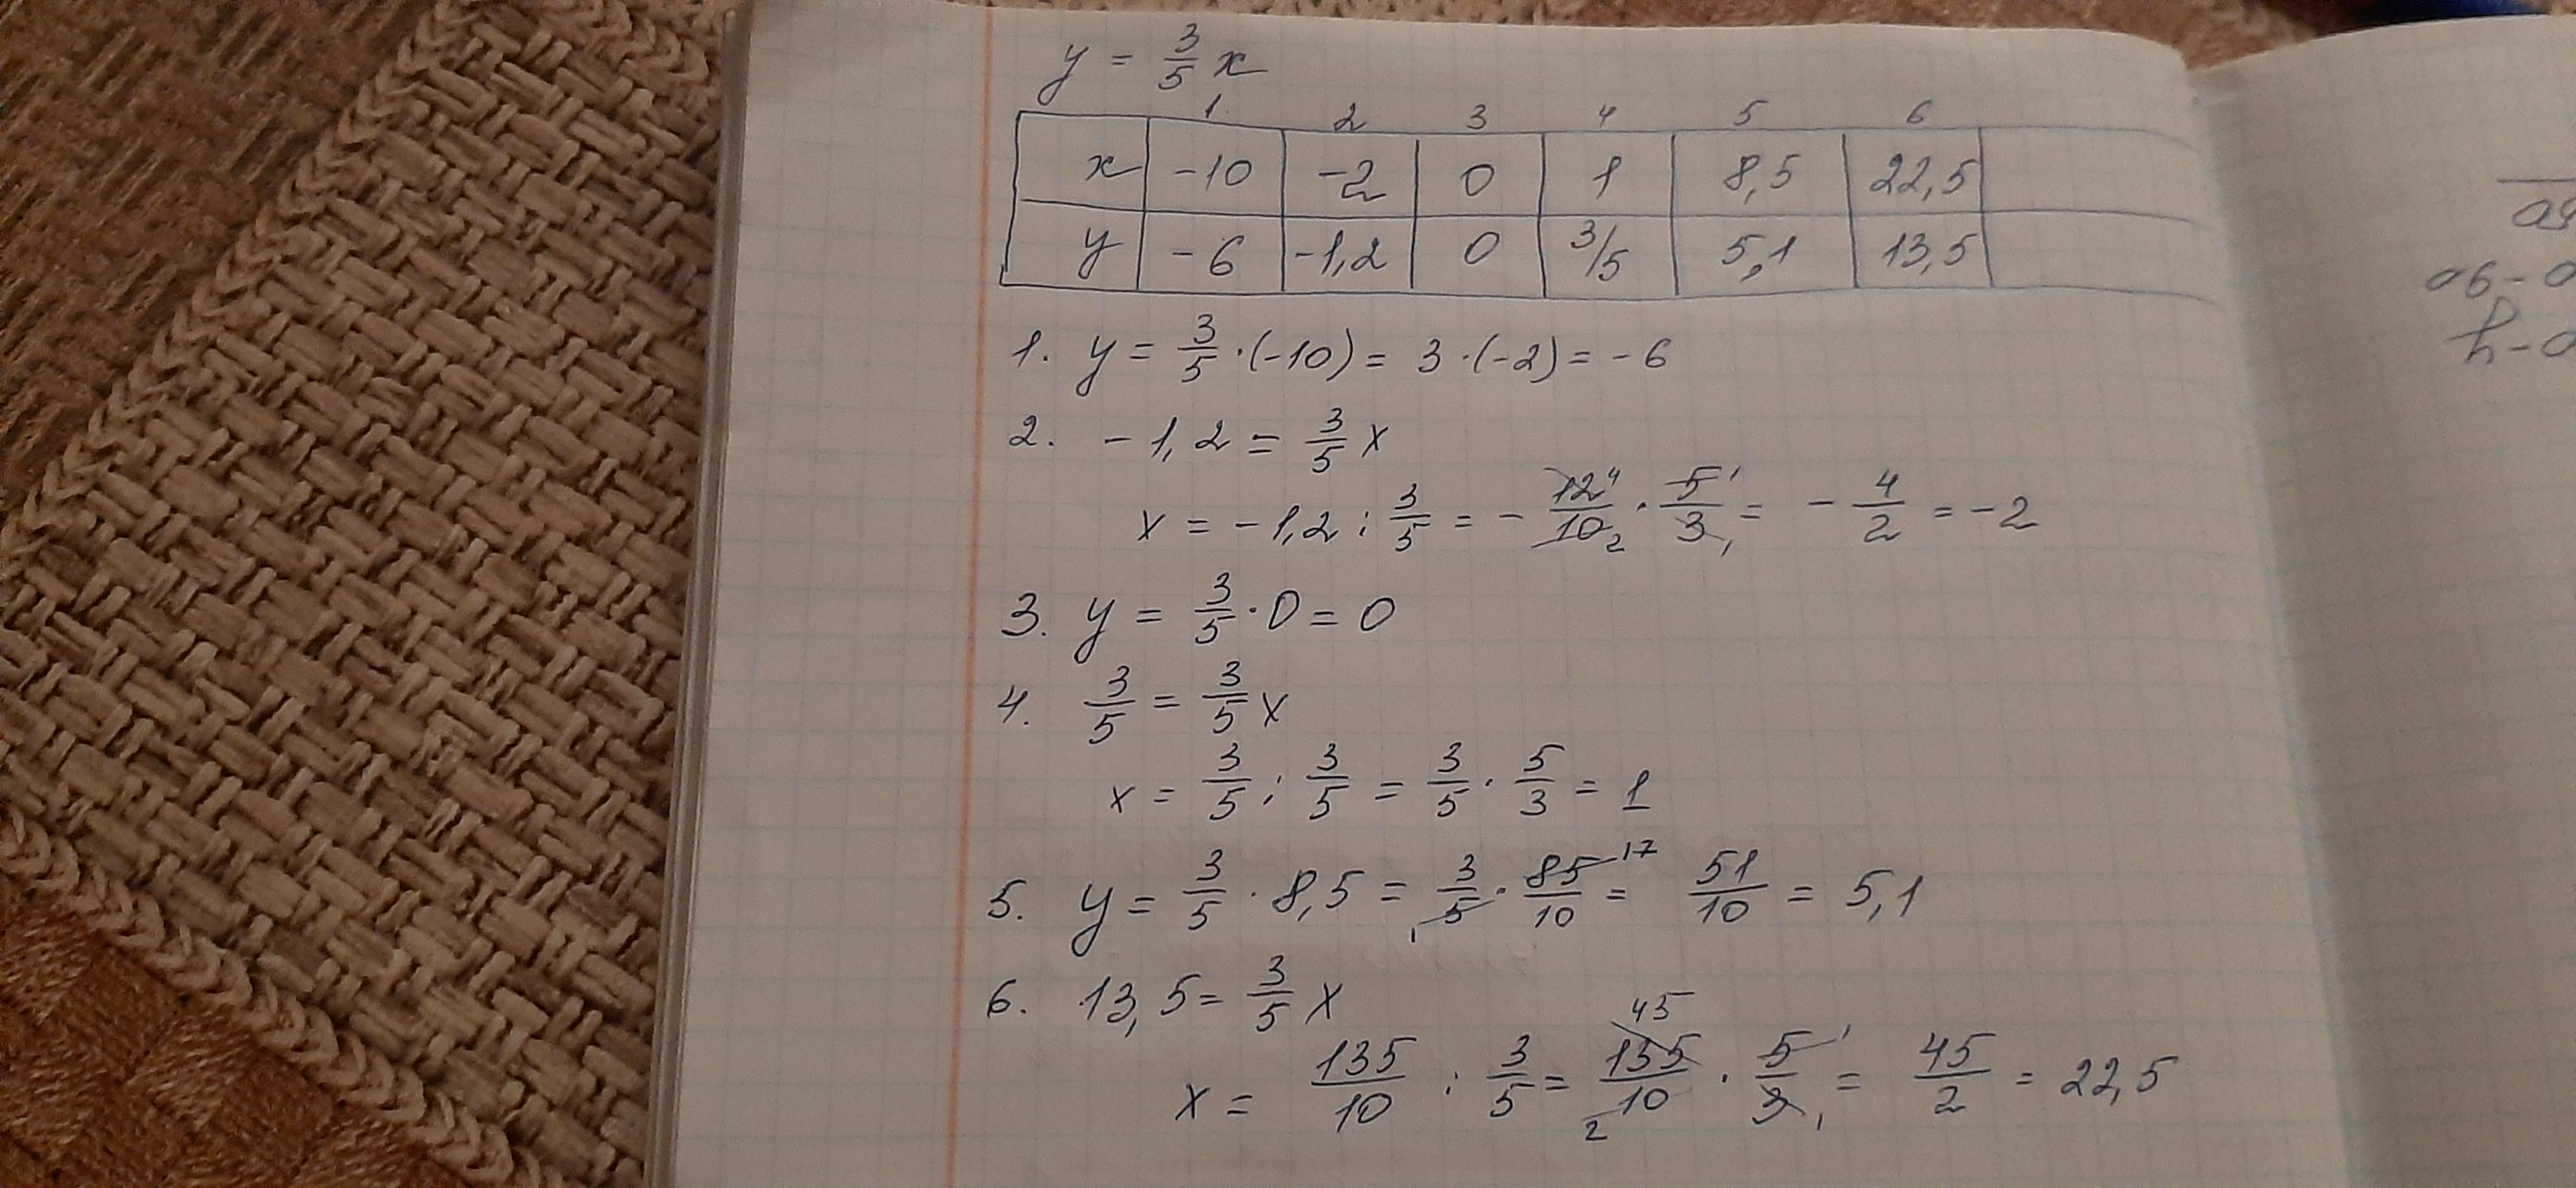 y = 3/5 x
1. 2 3 4 5 6
x -10 -2 0 1 8,5 22,5
y -6 -1,2 0 3/5 5,1 13,5
1. y = 3/5 · (-10) = 3 · (-2) = -6
2. -1,2 = 3/5 x
x = -1,2 : 3/5 = - 12 4/10 2 · 5 1/3 1 = - 4/2 = -2
3. y = 3/5 · 0 = 0
4. 3/5 = 3/5 x
x = 3/5 : 3/5 = 3/5 · 5/3 = 1
5. y = 3/5 · 8,5 = 3/5 1 · 85 17/10 = 51/10 = 5,1
6. 13,5 = 3/5 x
x = 135/10 : 3/5 = 135 45/10 2 · 5 1/3 1 = 45/2 = 22,5